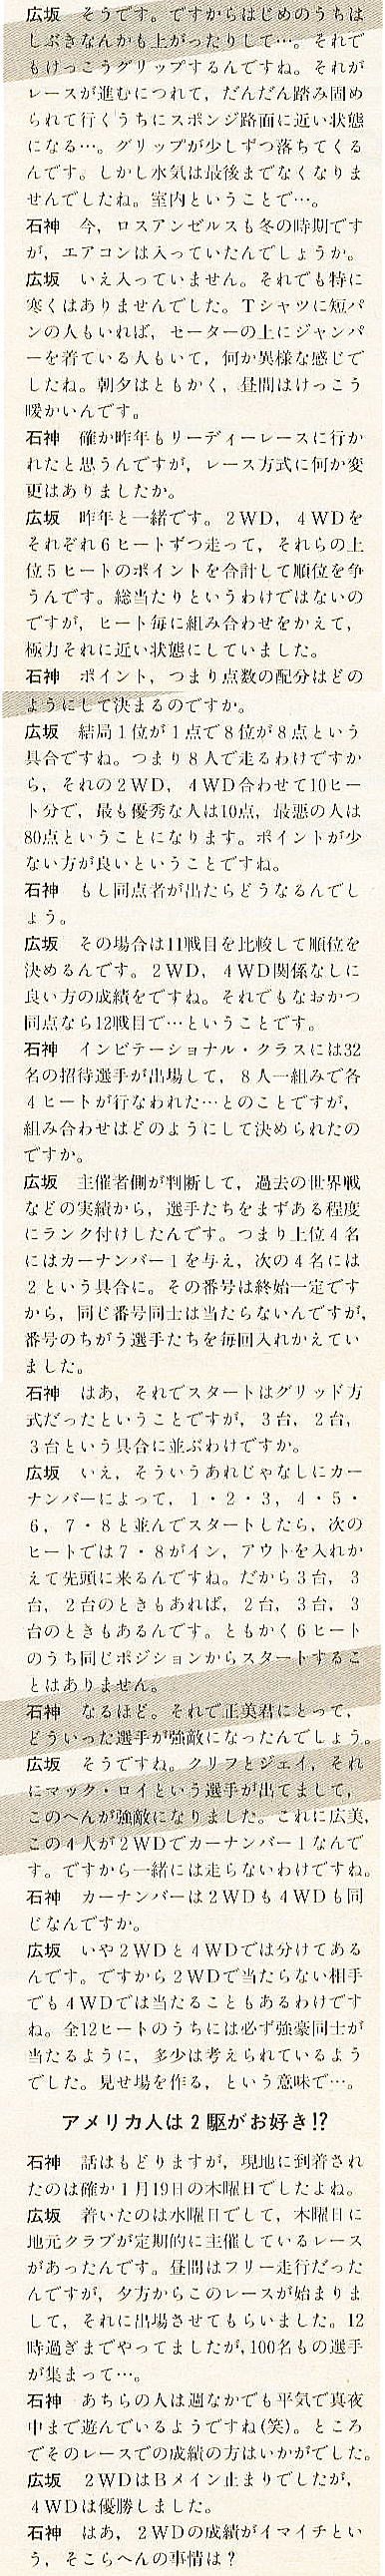 広坂　そうです。ですからはじめのうちは
しぶきなんかも上がったりして…。それで
もけっこうグリップするんですね。それが
レースが進むにつれて，だんだん踏み固め
られて行くうちにスポンジ路面に近い状態
になる…。グリップが少しずつ落ちてくる
んです。しかし水気は最後までなくなりま
せんでしたね。室内ということで…。
石神　今，ロスアンゼルスも冬の時期です
が，エアコンは入っていたんでしょうか。
広坂　いえ入っていません。それでも特に
寒くはありませんでした。Tシャツに短パ
ンの人もいれば，セーターの上にジャンパ
ーを着ている人もいて，何か異様な感じで
したね。朝夕はともかく，昼間はけっこう
暖かいんです。
石神　確か昨年もリーディーレースに行か
れたと思うんですが，レース方式に何か変
更はありましたか。
広坂　昨年と一緒です。2WD，4WDを
それぞれ6ヒートずつ走って，それらの上
位5ヒートのポイントを合計して順位を争
うんです。総当たりというわけではないの
ですが，ヒート毎に組み合わせをかえて，
極力それに近い状態にしていました。
石神　ポイント，つまり点数の配分はどの
ようにして決まるのですか。
広坂　結局1位が1点で8位が8点という
具合ですね。つまり8人で走るわけですか
ら，それの2WD，4WD合わせて10ヒー
ト分で，最も優秀な人は10点，最悪の人は
80点ということになります。ポイントが少
ない方が良いということですね。
石神　もし同点者が出たらどうなるんでし
ょう。
広坂　その場合は11戦目を比較して順位を
決めるんです。2WD，4WD関係なしに
良い方の成績をですね。それでもなおかつ
同点なら12戦目で…ということです。
石神　インビテーショナル・クラスには32
名の招待選手が出場して，8人一組みで各
4ヒートが行なわれた…とのことですが，
組み合わせはどのようにして決められたの
ですか。
広坂　主催者側が判断して，過去の世界戦
などの実績から，選手たちをまずある程度
にランク付けしたんです。つまり上位4名
にはカーナンバー1を与え，次の4名には
2という具合に。その番号は終始一定です
から，同じ番号同士は当たらないんですが，
番号のちがう選手たちを毎回入れかえてい
ました。
石神　はあ，それでスタートはグリッド方
式だったということですが，3台，2台，
3台という具合に並ぶわけですか。
広坂　いえ，そういうあれじゃなしにカー
ナンバーによって，1・2・3，4・5・
6，7・8と並んでスタートしたら，次の
ヒートでは7・8がイン，アウトを入れか
えて先頭に来るんですね。だから3台，3
台，2台のときもあれば，2台，3台，3
台のときもあるんです。ともかく6ヒート
のうち同じポジションからスタートするこ
とはありません。
石神　なるほど。それで正美君にとって，
どういった選手が強敵になったんでしょう。
広坂　そうですね。クリフとジェイ，それ
にマック・ロイという選手が出てまして，
このへんが強敵になりました。これに広美，
この4人が2WDでカーナンバー1なんで
す。ですから一緒には走らないわけですね。
石神　カーナンバーは2WDも4WDも同
じなんですか。
広坂　いや2WDと4WDでは分けてある
んです。ですから2WDで当たらない相手
でも4WDでは当たることもあるわけです
ね。全12ヒートのうちには必ず強豪同士が
当たるように，多少は考えられているよう
でした。見せ場を作る，という意味で…。
アメリカ人は2駆がお好き!?
石神　話はもどりますが，現地に到着され
たのは確か1月19日の木曜日でしたよね。
広坂　着いたのは水曜日でして，木曜日に
地元クラブが定期的に主催しているレース
があったんです。昼間はフリー走行だった
んですが，夕方からこのレースが始まりま
して，それに出場させてもらいました。12
時過ぎまでやってましたが，100名もの選手
が集まって…。
石神　あちらの人は週なかでも平気で真夜
中まで遊んでいるようですね(笑)。ところ
でそのレースでの成績の方はいかがでした。
広坂　2WDはBメイン止まりでしたが，
4WDは優勝しました。
石神　はあ，2WDの成績がイマイチとい
う，そこらへんの事情は？